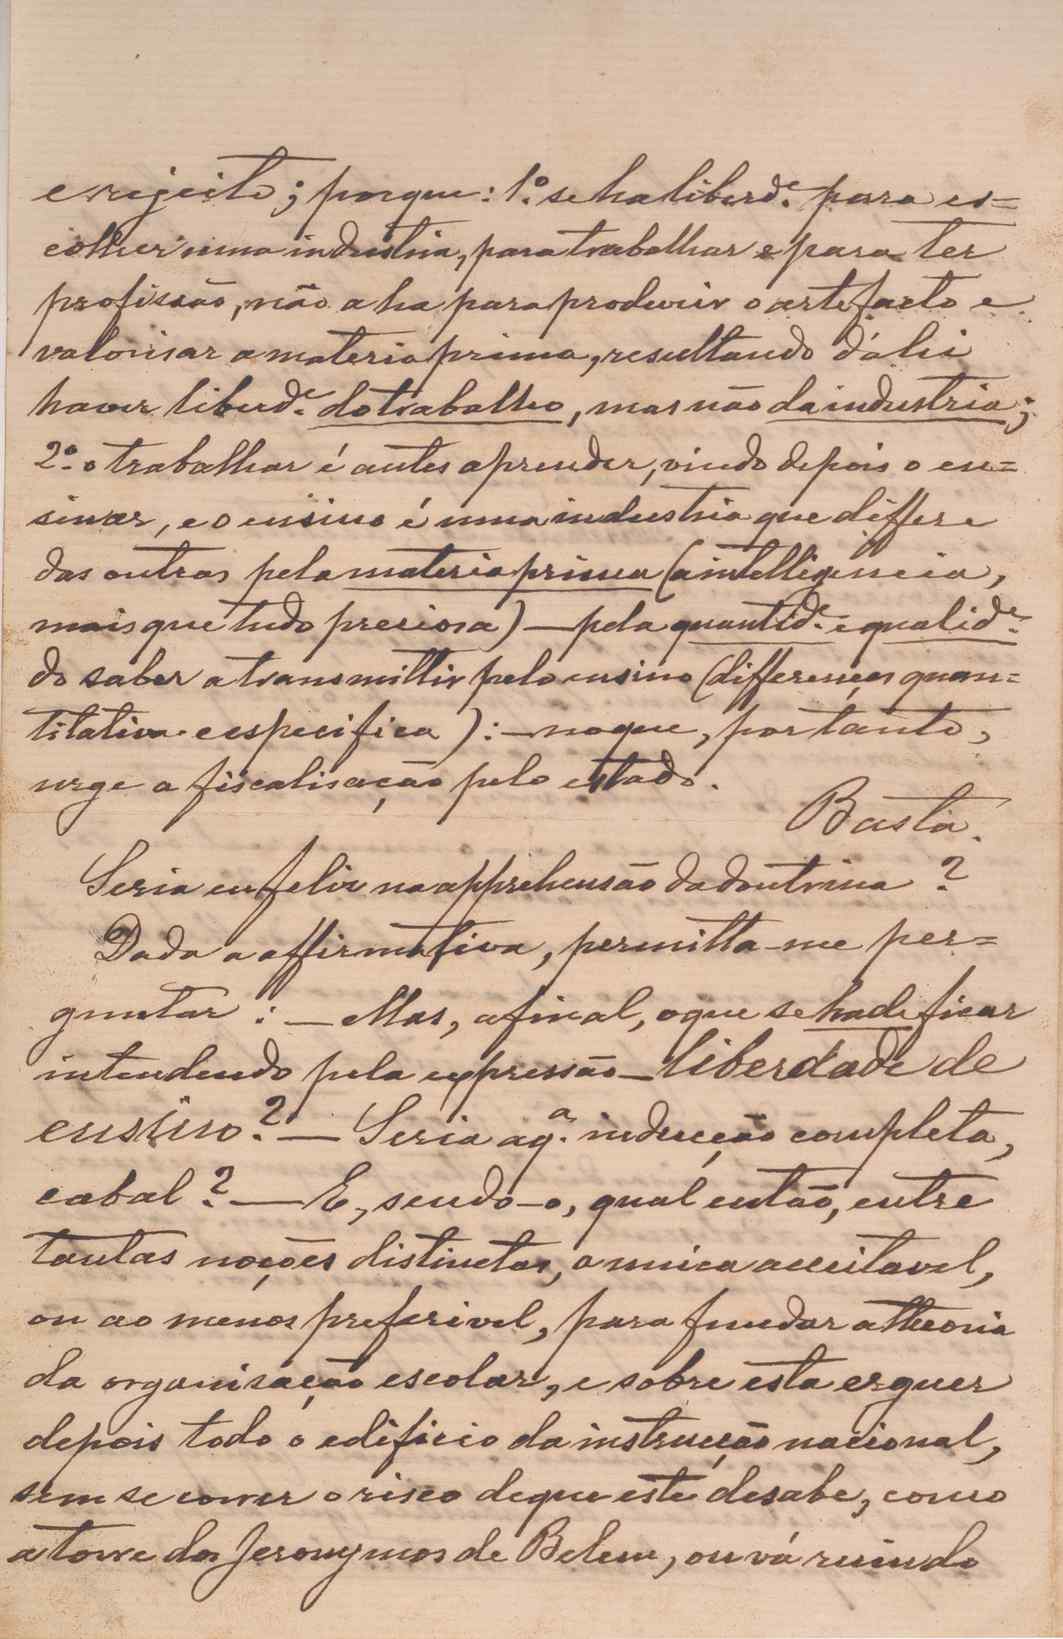 e rejeito; porque: 1.º se ha liberd.e para es=
colher uma industria, para trabalhar e para ter
profissão, não a ha para produzir o artefacto e
valorisar a materia prima, resultando d'ahi
haver liberd.e do trabalho, mas não da industria;
2.º o trabalhar é antes aprender, vindo depois o en=
sinar, e o ensino é uma industria que differe
das outras pela materia prima (a intelligencia,
mais que tudo preciosa) — pela quantid.e e qualid.e
do saber a transmittir pelo ensino (differenças quan=
titativa e especifica): — no que, portanto,
urge a fiscalisação pelo estado.
Basta.
Seria eu feliz na apprehensão da doutrina?
Dada a affirmativa, permitta-me per=
guntar: — Mas, afinal, o que se ha de ficar
intendendo pela expressão — liberdade de
ensino? — Seria aq.a inducção completa,
cabal? — E, sendo-o, qual então, entre
tantas noções distinctas, a unica acceitavel,
ou ao menos preferivel, para fundar a theoria
da organisação escolar, e sobre esta erguer
depois todo o edificio da instrucção nacional,
sem se correr o risco de que este desabe, como
a torre dos Jeronymos de Belem, ou vá ruindo